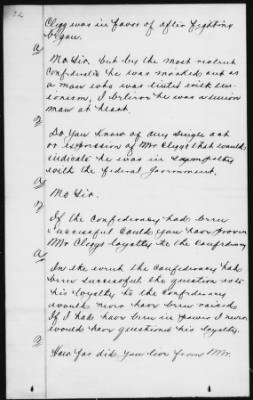 22
Clegg was in favor of after fighting
began.
A
No Sir. but by the most violent
Confederates he was marked out as
a man who was tinted with un-
ionism, I believe he was a union
man at heart.
Q
Do you know of any single act
or expression of Mr Clegg that would
indicate he was in sympathy
with the federal Government.
A
No Sir.
Q
If the Confederacy had been
successful could you have proven
Mr Cleggs loyalty to the Confederacy
A
In the event the Confederacy had
been successful the question of
his loyalty to the Confederacy
would never have been raised
If I had have been in power I never
would have questioned his loyalty.
Q
How far did you live from Mr.